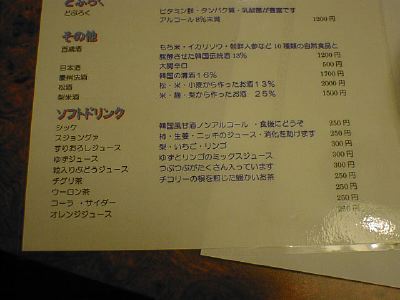 どぶろく
どぶろく ビタミン群・タンパク質・乳酸菌が豊富です
アルコール8%未満 1200円
その他
百歳酒 もち米・イカリソウ・朝鮮人参など10種類の自然食品と
醗酵させた韓国伝統酒13% 1200円
日本酒 大関辛口 500円
慶州法酒 韓国の清酒16% 1700円
松酒 松・米・小麦から作ったお酒13% 2000円
梨米酒 米・麹・梨から作ったお酒 25% 1500円
ソフトドリンク
シッケ 韓国風甘酒ノンアルコール・食後にどうぞ 250円
スジョングァ 柿・生姜・ニッキのジュース・消化を助けます 250円
すりおろしジュース 梨・いちご・リンゴ 300円
ゆずジュース ゆずとリンゴのミックスジュース 300円
粒入りぶどうジュース つぶつぶがたくさん入っています 300円
チグリ茶 チコリーの根を煎じた暖かいお茶 250円
ウーロン茶 250円
コーラ・サイダー 250円
オレンジジュース 250円